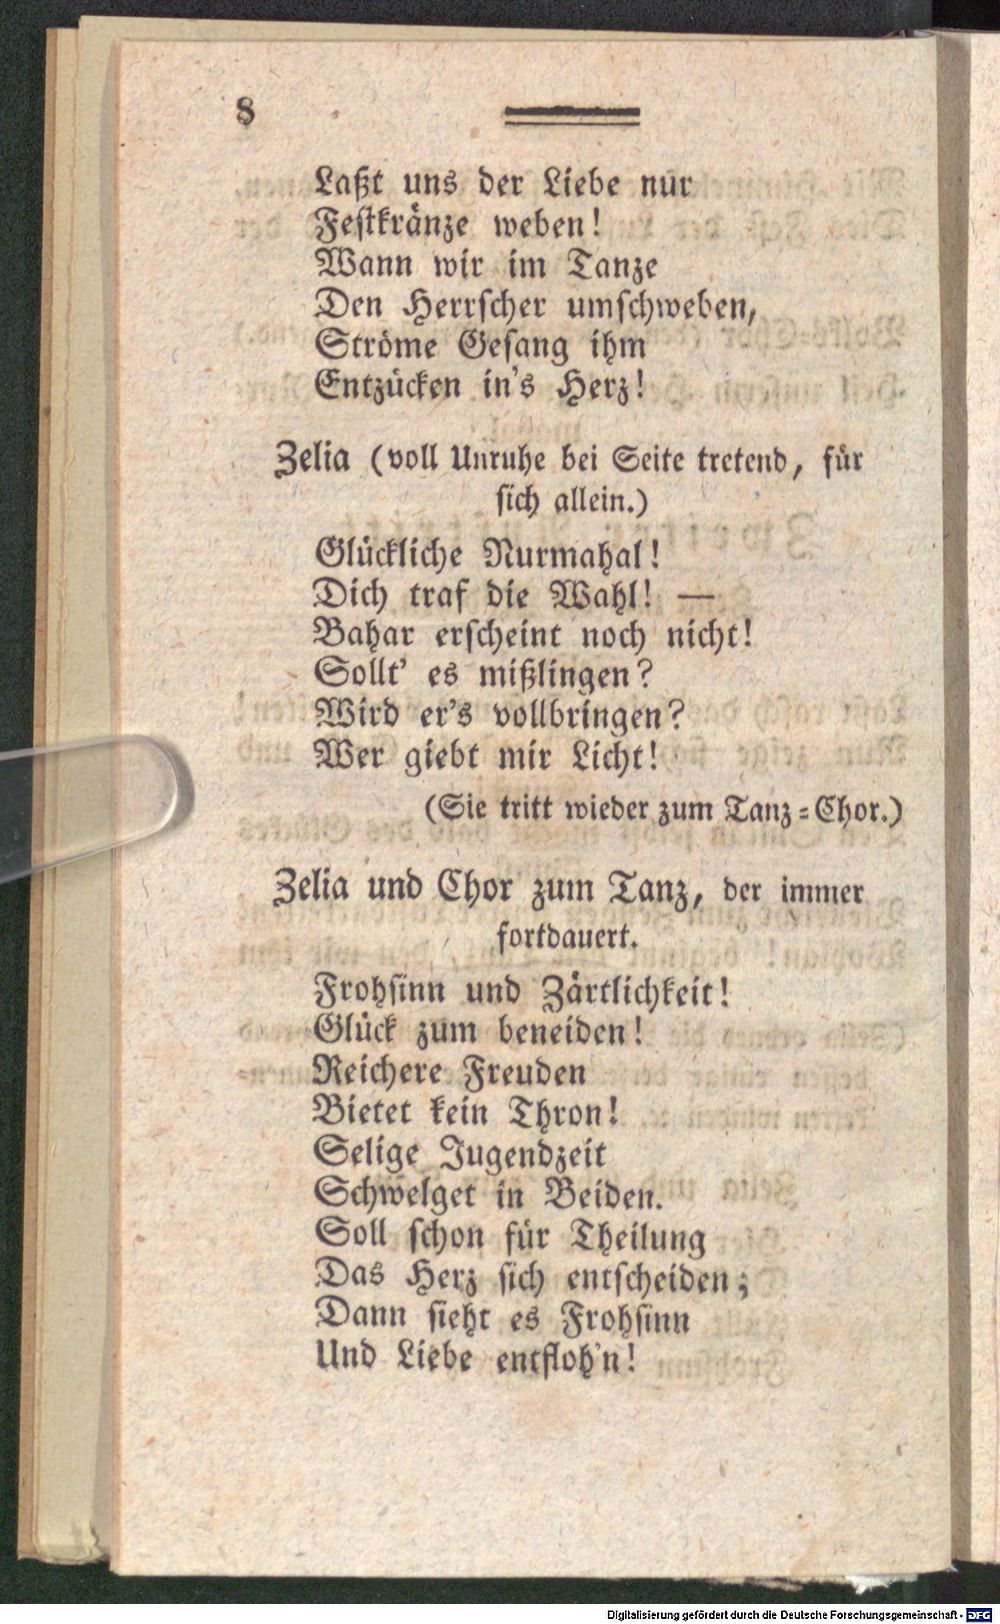 8
Laßt uns der Liebe nur
Festkränze weben!
Wann wir im Tanze
Den Herrscher umschweben,
Ströme Gesang ihm
Entzücken in's Herz!
Zelia (voll Unruhe bei Seite tretend, für
sich allein.)
Glückliche Nurmahal!
Dich traf die Wahl! —
Bahar erscheint noch nicht!
Sollt' es mißlingen?
Wird er's vollbringen?
Wer giebt mir Licht!
(Sie tritt wieder zum Tanz=Chor.)
Zelia und Chor zum Tanz, der immer
fortdauert.
Frohsinn und Zärtlichkeit!
Glück zum beneiden!
Reichere Freuden
Bietet kein Thron!
Selige Jugendzeit
Schwelget in Beiden.
Soll schon für Theilung
Das Herz sich entscheiden;
Dann sieht es Frohsinn
Und Liebe entfloh'n!
Digitalisierung gefördert durch die Deutsche Forschungsgemeinschaft - DFG